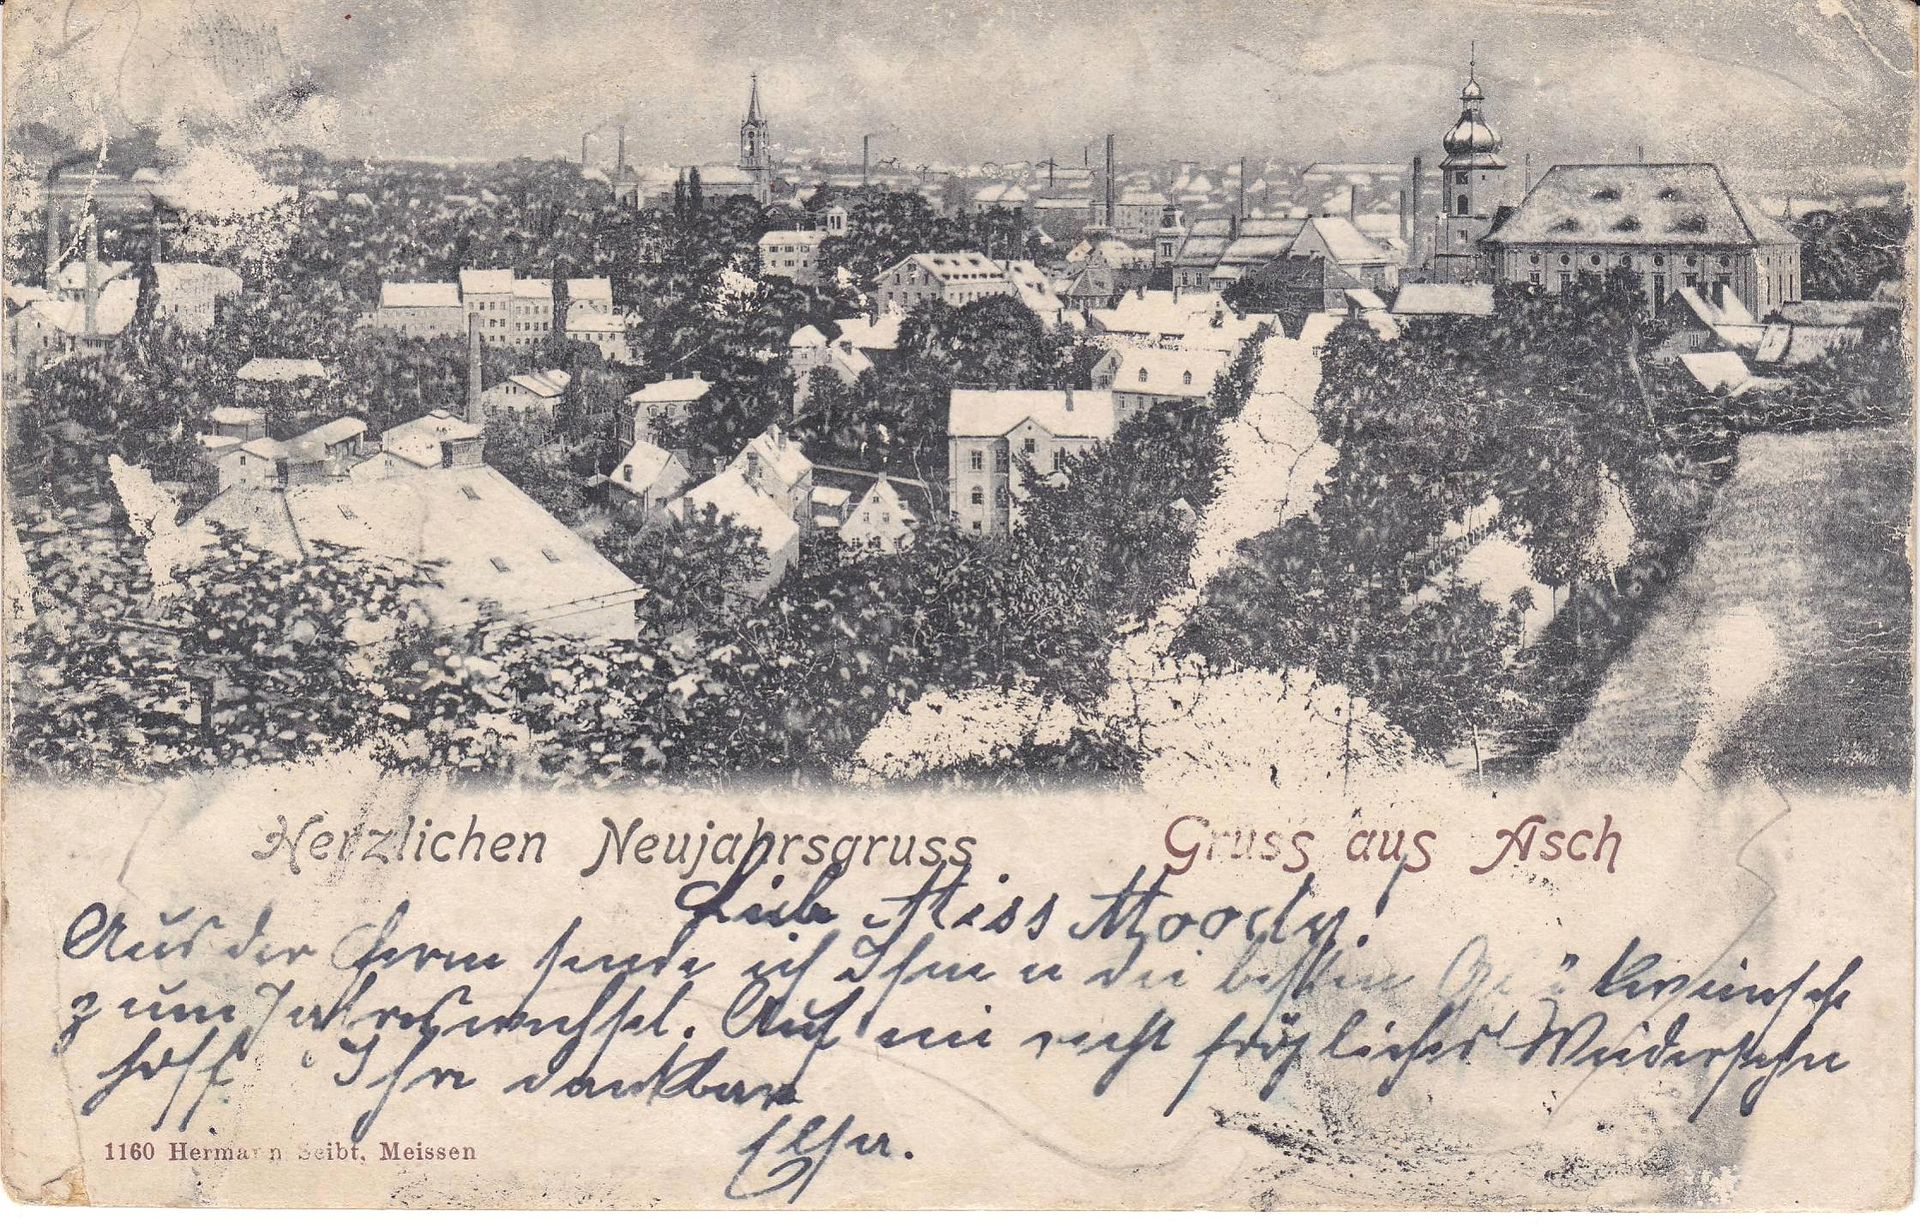 Herzlichen Neujahrsgruss
Gruss aus Asch
Liebe Miss Moody!
Aus der Ferne sende ich Ihnen die besten Glückwünsche
zum Jahreswechsel. Auf ein recht fröhliches Wiedersehn
hofft Ihre dankbare
Elsa.
1160 Hermann Seibt, Meissen